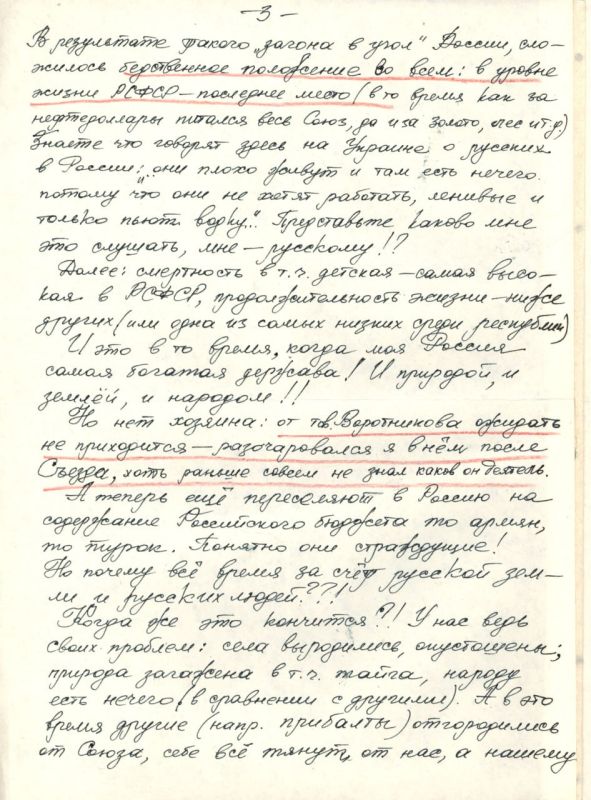 – 3 –
В результате такого „загона в угол" России, сло-
жилось бедственное положение во всем: в уровне
жизни РСФСР – последнее место (в то время как за
нефтедоллары питался весь Союз, да и за золото, лес и т.д.)
Знаете что говорят здесь на Украине о русских
в России: „они плохо живут и там есть нечего
потому что они не хотят работать, ленивые и
только пьют водку". Представьте каково мне
это слушать, мне – русскому!?
Далее: смертность в т.ч. детская – самая высо-
кая в РСФСР, продолжительность жизни – ниже
других (или одна из самых низких среди республик)
И это в то время, когда моя Россия
самая богатая держава! И природой, и
землёй, и народом!!!
Но нет хозяина: от тов. Воротникова ожидать
не приходится – разочаровался я в нём после
Съезда, хоть раньше совсем не знал каков он деятель.
А теперь ещё переселяют в Россию на
содержание Российского бюджета то армян,
то турок. Понятно они страждущие!
Но почему всё время за счёт русской зем-
ли и русских людей??!!
Когда же это кончится?!! У нас ведь
своих проблем: села выродились, опустошены;
природа загажена в т.ч. тайга, народу
есть нечего (в сравнении с другими). А в это
время другие (напр. прибалты) отгородились
от Союза, себе всё тянут, от нас, а нашему